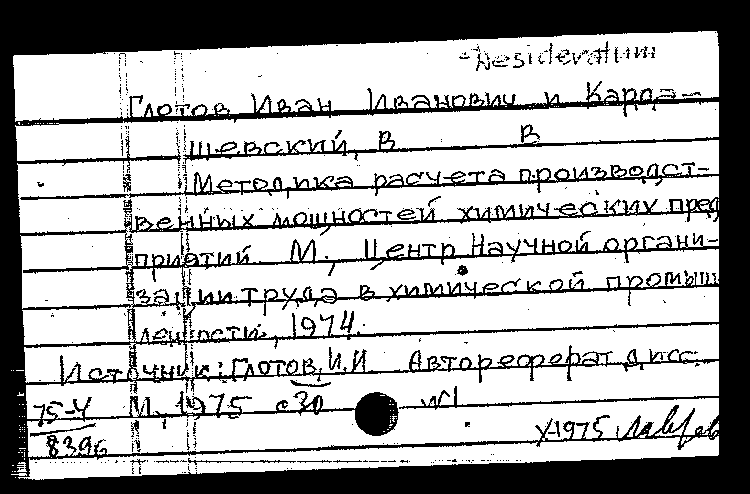 -Desideratum
Глотов, Иван Иванович и Карда-
шевский, В В
Методика расчета производст-
венных мощностей химических пред
приятий. М., Центр Научной органи-
зации труда в химической промыш
лености, 1974.
Источник: Глотов, И.И Автореферат дисс.
75-4 М., 1975 с30 №1
8396 X-1975